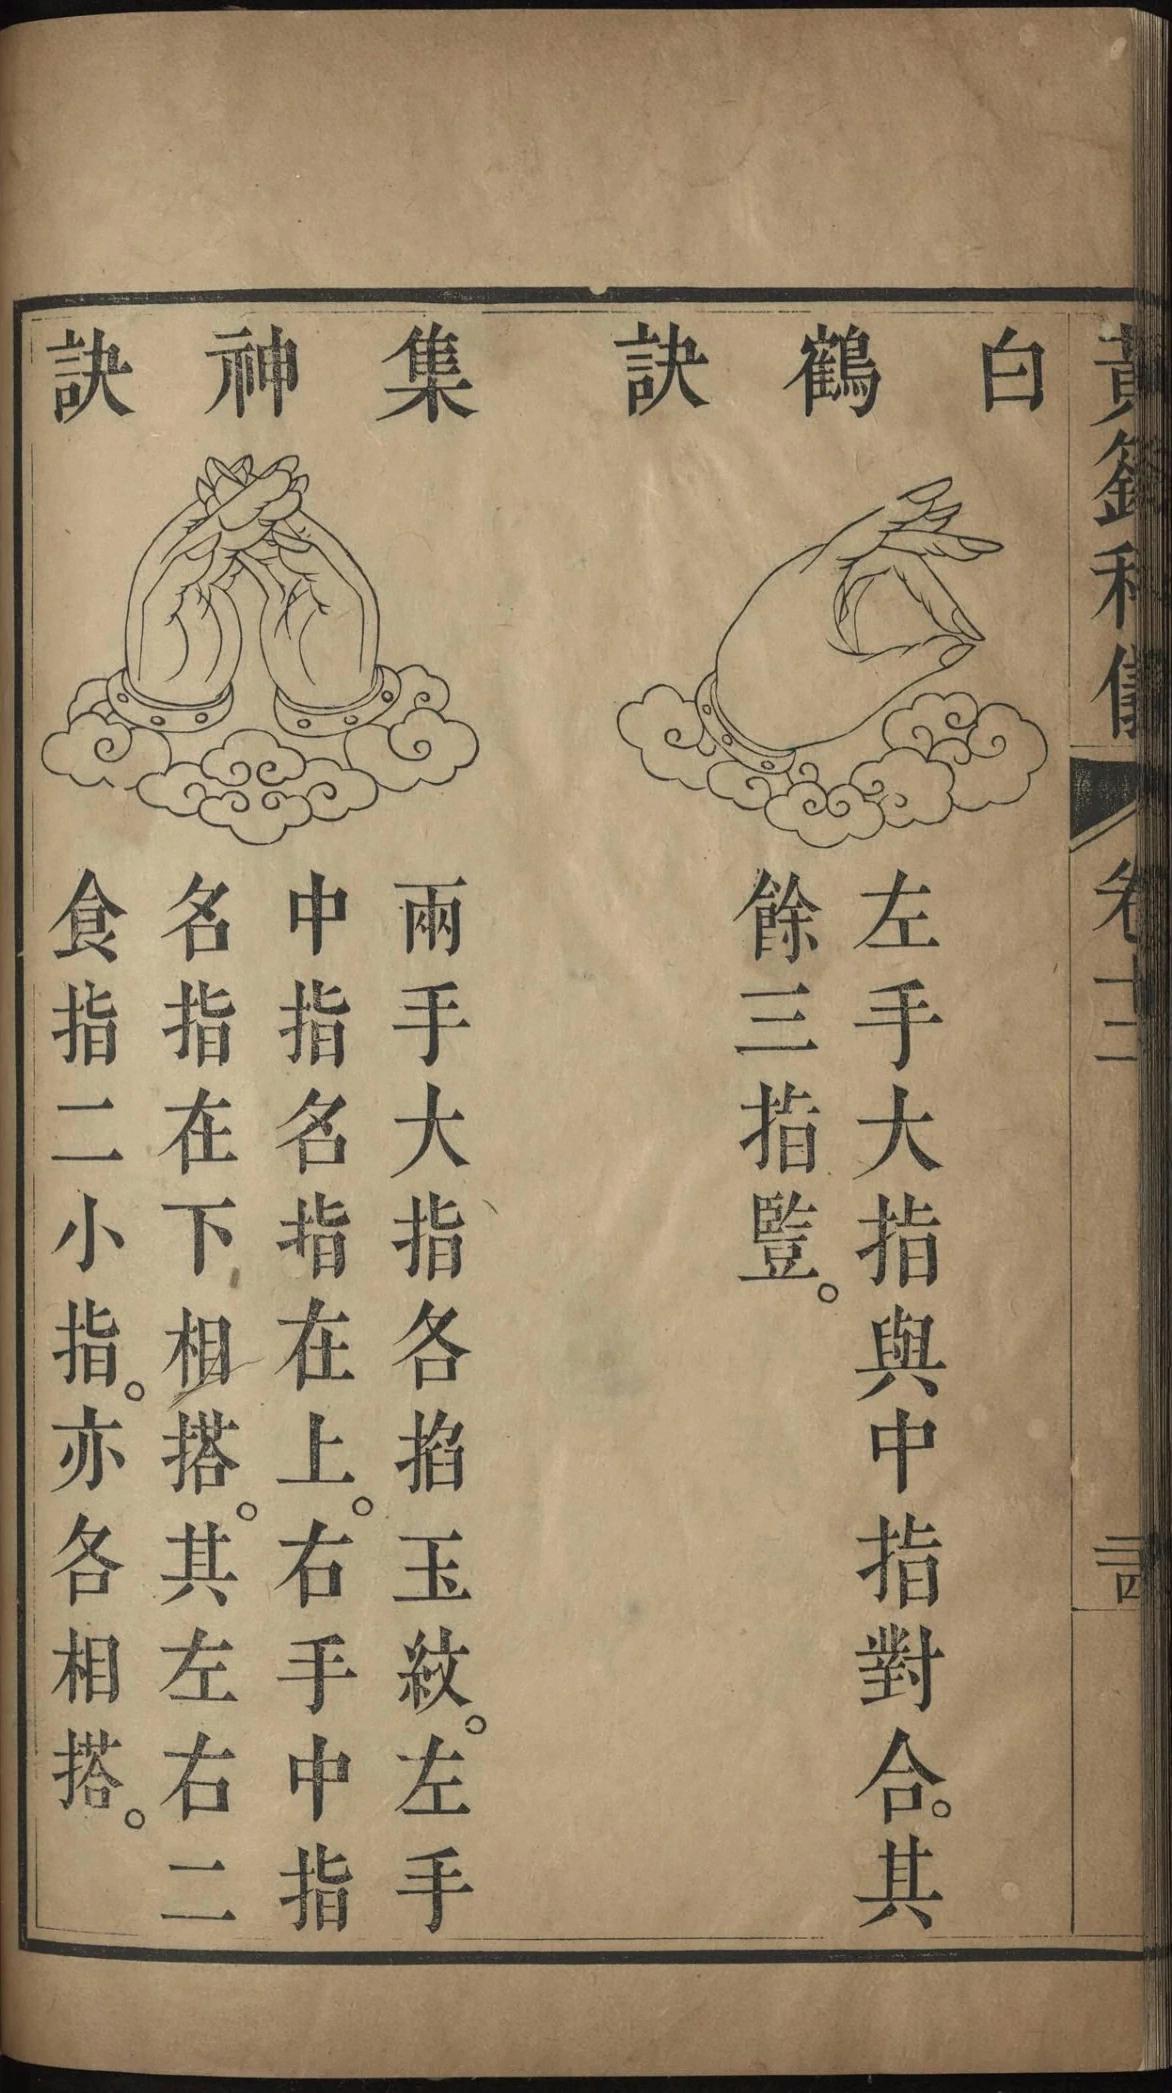 黃籙科儀
卷十二
白鶴訣
左手大指與中指對合。其
餘三指豎。
集神訣
兩手大指各掐玉紋。左手
中指名指在上。右手中指
名指在下相搭。其左右二
食指二小指。亦各相搭。